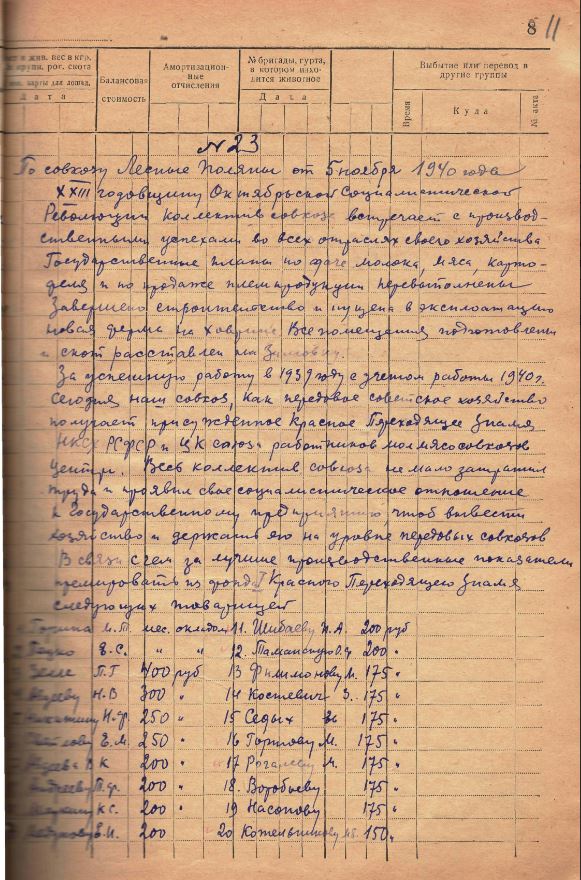 8 11
вес в кгр.
крупн. рог. скота
карты для лошад.
Дата
Балансовая
стоимость
Амортизацион-
ные
отчисления
№ бригады, гурта,
в котором нахо-
дится животное
Дата
Выбытие или перевод в
другие группы
Время
Куда
№ акта
№ 23
По совхозу Лесные Поляны от 5 ноября 1940 года
XXIII годовщину Октябрьской Социалистической
Революции коллектив совхоза встречает с производ-
ственными успехами во всех отраслях своего хозяйства
Государственные планы по сдаче молока, мяса, карто-
феля и по продаже племпродукции перевыполнены
Завершено строительство и пущена в эксплоатацию
новая ферма на Ховрине. Все помещения подготовлены
и скот расставлен на Зимовку.
За успешную работу в 1939 году с учетом работы 1940 г.
Сегодня наш совхоз, как передовое советское хозяйство
получает присужденное Красное Переходящее Знамя
НКСХ РСФСР и ЦК союза работников молмясосовхозов
Центра. Весь коллектив совхоза не мало затратил
труда и проявил свое социалистическое отношение
к Государственному предприятию, чтоб вывести
хозяйство и держать его на уровне передовых совхозов
В связи с чем за лучшие производственные показатели
премировать из фонда Красного Переходящего Знамя
следующих товарищей
М.П. мес. оклад 11. Шибаеву И.А. 200 руб
Е.С. " " 12. О.Ф 200 "
П.Г 400 руб 13 Филимонову М. 175 "
Н.В 300 " 14 Костевич З. 175 "
Никитину Н.Ф. 250 " 15 Седых 175 "
Е.М. 250 " 16 Гортову М. 175 "
К 200 " 17 М. 175 "
Андрееву П.Ф. 200 " 18. Воробьеву 175 "
К.С. 200 " 19 Насонову 175 "
Е.И. 200 20 150 "